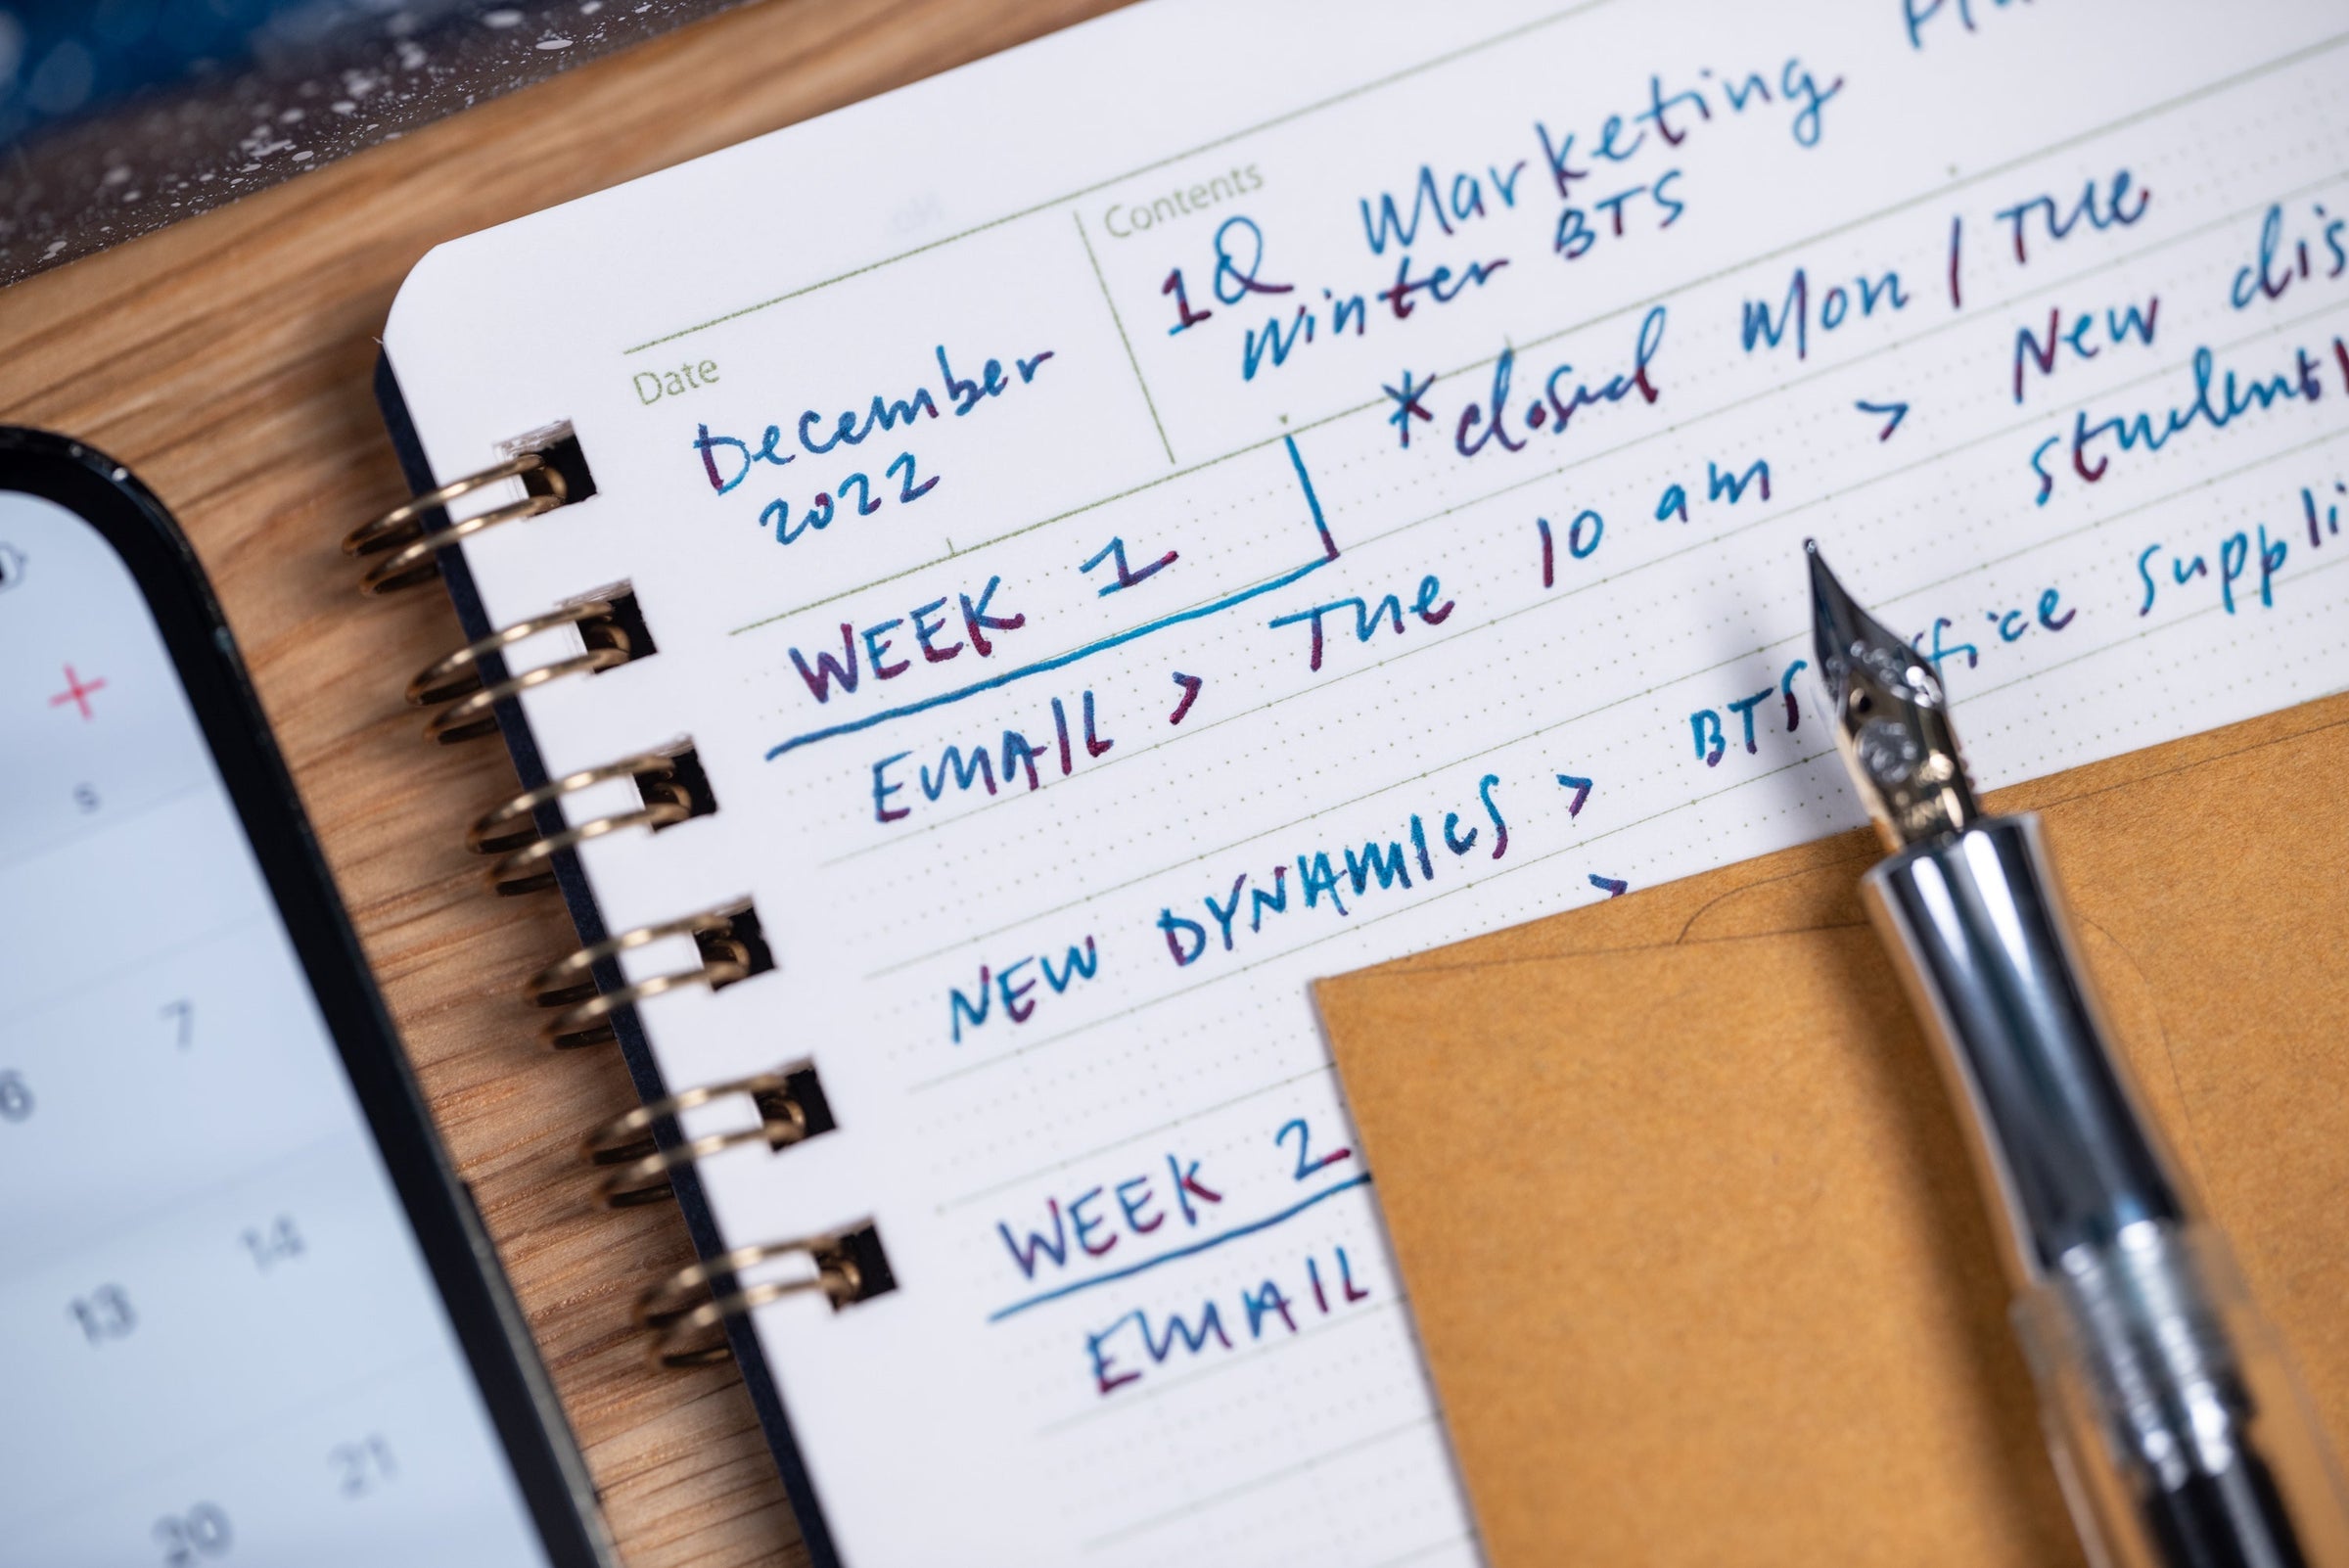 Contents
1Q Marketing
Winter BTS
Date
December
2022
*closed Mon / Tue
WEEK 1
EMAIL > Tue 10 am > New dis
student
NEW DYNAMICS > BTS ffice suppli
>
WEEK 2
EMAIL
+
S
6 7
13 14
20 21